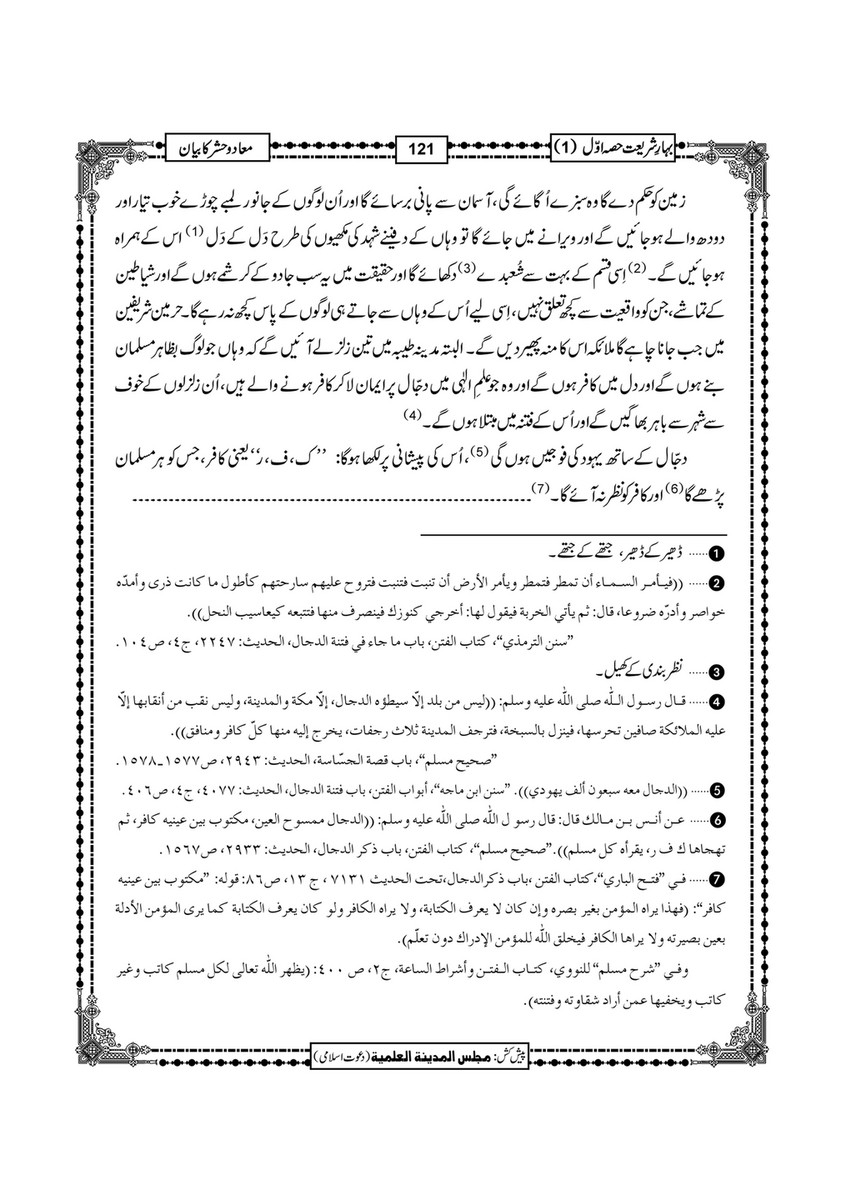 بہارِ شریعت حصہ اوّل (1)
121
معاد و حشر کا بیان
زمین کو حکم دے گا وہ سبزے اُگائے گی، آسمان سے پانی برسائے گا اور اُن لوگوں کے جانور لمبے چوڑے خوب تیار اور
دودھ والے ہو جائیں گے اور ویرانے میں جائے گا تو وہاں کے دفینے شہد کی مکھیوں کی طرح دَل کے دَل (1) اس کے ہمراہ
ہو جائیں گے۔ (2) اِسی قسم کے بہت سے شُعبدے (3) دکھائے گا اور حقیقت میں یہ سب جادو کے کرشمے ہوں گے اور شیاطین
کے تماشے، جن کو واقعیت سے کچھ تعلق نہیں، اِسی لیے اُس کے وہاں سے جاتے ہی لوگوں کے پاس کچھ نہ رہے گا۔ حرمین شریفین
میں جب جانا چاہے گا ملائکہ اس کا منہ پھیر دیں گے۔ البتہ مدینہ طیبہ میں تین زلزلے آئیں گے کہ وہاں جو لوگ بظاہر مسلمان
بنے ہوں گے اور دل میں کافر ہوں گے اور وہ جو علمِ الٰہی میں دجّال پر ایمان لا کر کافر ہونے والے ہیں، اُن زلزلوں کے خوف
سے شہر سے باہر بھاگیں گے اور اُس کے فتنہ میں مبتلا ہوں گے۔ (4)
دجّال کے ساتھ یہود کی فوجیں ہوں گی (5)، اُس کی پیشانی پر لکھا ہوگا: ’’ک، ف، ر‘‘ یعنی کافر، جس کو ہر مسلمان
پڑھے گا (6) اور کافر کو نظر نہ آئے گا۔ (7) ------------------------------------------------------------------
1 ...... ڈھیر کے ڈھیر، جتھے کے جتھے۔
2 ...... ((فيـأمـر السـمـاء أن تمطر فتمطر ويأمر الأرض أن تنبت فتنبت فتروح عليهم سارحتهم كأطول ما كانت ذرى وأمدّه
خواصر وأدرّه ضروعا، قال: ثم يأتي الخربة فيقول لها: أخرجي كنوزك فينصرف منها فتتبعه كيعاسيب النحل)).
”سنن الترمذي“، كتاب الفتن، باب ما جاء في فتنة الدجال، الحديث: ٢٢٤٧، ج٤، ص١٠٤.
3 ...... نظر بندی کے کھیل۔
4 ...... قـال رسـول اللّٰه صلى اللّٰه عليه وسلم: ((ليس من بلد إلّا سيطؤه الدجال، إلّا مكة والمدينة، وليس نقب من أنقابها إلّا
عليه الملائكة صافين تحرسها، فينزل بالسبخة، فترجف المدينة ثلاث رجفات، يخرج إليه منها كلّ كافر ومنافق)).
”صحيح مسلم“، باب قصة الجسّاسة، الحديث: ٢٩٤٣، ص١٥٧٧ـ١٥٧٨.
5 ...... ((الدجال معه سبعون ألف يهودي)). ”سنن ابن ماجه“، أبواب الفتن، باب فتنة الدجال، الحديث: ٤٠٧٧، ج٤، ص٤٠٦.
6 ...... عـن أنـس بـن مـالك قال: قال رسو ل اللّٰه صلى اللّٰه عليه وسلم: ((الدجال ممسوح العين، مكتوب بين عينيه كافر، ثم
تهجاها ك ف ر، يقرأه كل مسلم)).”صحيح مسلم“، كتاب الفتن، باب ذكر الدجال، الحديث: ٢٩٣٣، ص١٥٦٧.
7 ...... فـي ”فتـح الباري“،كتاب الفتن ،باب ذكرالدجال،تحت الحديث ٧١٣١ ، ج ١٣، ص٨٦: قوله: ”مكتوب بين عينيه
كافر“: (فهذا يراه المؤمن بغير بصره وإن كان لا يعرف الكتابة، ولا يراه الكافر ولو كان يعرف الكتابة كما يرى المؤمن الأدلة
بعين بصيرته ولا يراها الكافر فيخلق اللّٰه للمؤمن الإدراك دون تعلّم).
وفـي ”شرح مسلم“ للنووي، كتـاب الـفتـن وأشراط الساعة، ج٢، ص ٤٠٠: (يظهر اللّٰه تعالى لكل مسلم كاتب وغير
كاتب ويخفيها عمن أراد شقاوته وفتنته).
پیش کش: مجلس المدینة العلمیة (دعوت اسلامی)